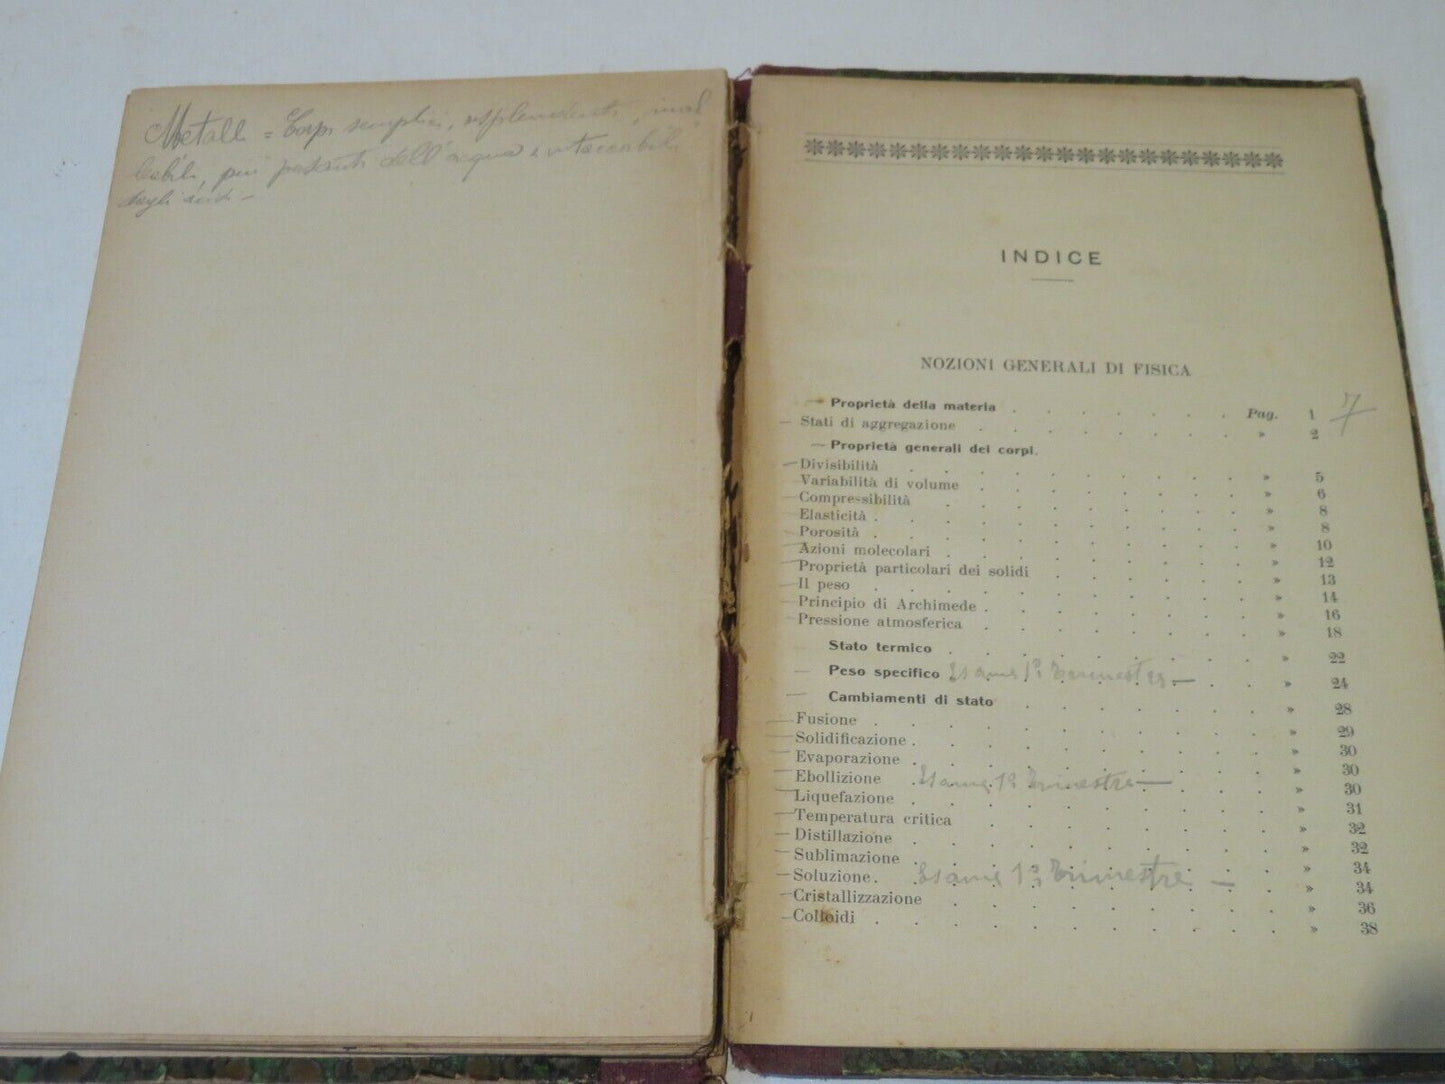 Metalli = Corpi semplici, risplendenti, inal
più pesanti dell'acqua e
dagli acidi -
INDICE
NOZIONI GENERALI DI FISICA
— Proprietà della materia . . . . . . Pag. 1 7
— Stati di aggregazione . . . . . . . » 2
— Proprietà generali dei corpi.
— Divisibilità . . . . . . . . . » 5
— Variabilità di volume . . . . . . . » 6
— Compressibilità . . . . . . . . » 8
— Elasticità . . . . . . . . . » 8
— Porosità . . . . . . . . . » 10
— Azioni molecolari . . . . . . . . » 12
— Proprietà particolari dei solidi . . . . . » 13
— Il peso . . . . . . . . . » 14
— Principio di Archimede . . . . . . . » 16
— Pressione atmosferica . . . . . . . » 18
Stato termico . . . . . . . . » 22
— Peso specifico Esame 1º Trimestre — . . » 24
— Cambiamenti di stato . . . . . . . » 28
— Fusione . . . . . . . . . » 29
— Solidificazione . . . . . . . . » 30
— Evaporazione . . . . . . . . » 30
— Ebollizione Esame 1º Trimestre — . . . » 30
— Liquefazione . . . . . . . . » 31
— Temperatura critica . . . . . . . » 32
— Distillazione . . . . . . . . » 32
— Sublimazione . . . . . . . . » 34
— Soluzione. Esame 1º Trimestre — . . » 34
— Cristallizzazione . . . . . . . . » 36
— Colloidi . . . . . . . . . » 38